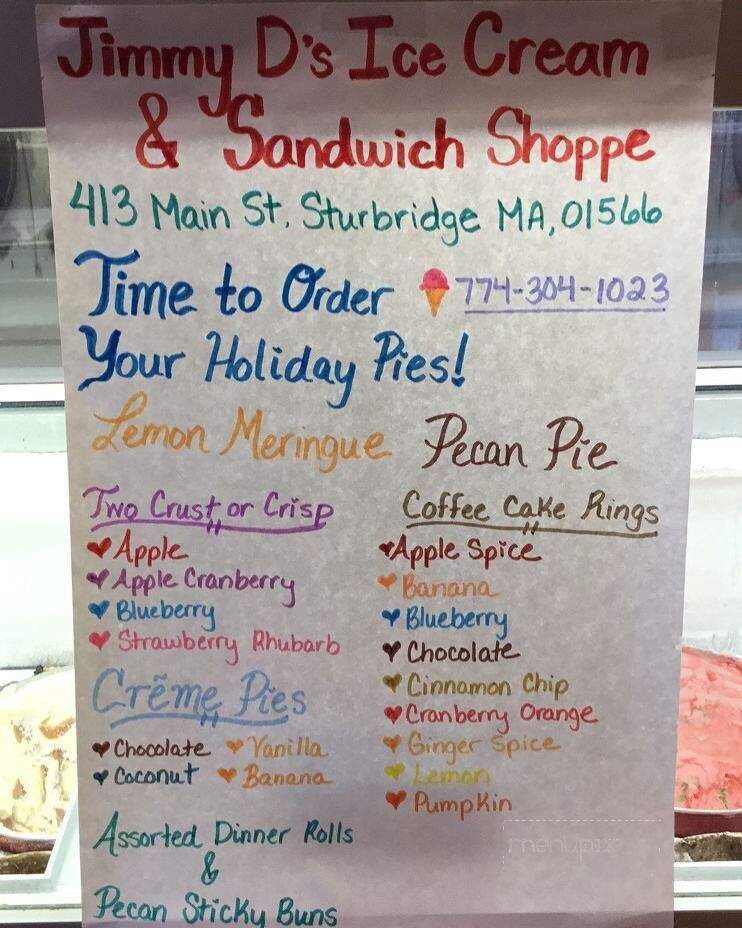 Jimmy D's Ice Cream
& Sandwich Shoppe
413 Main St. Sturbridge MA, 01566
Time to Order
774-304-1023
Your Holiday Pies!
Lemon Meringue
Pecan Pie
Two Crust or Crisp
Apple
Apple Cranberry
Blueberry
Strawberry Rhubarb
Crēme Pies
Chocolate
Vanilla
Coconut
Banana
Coffee Cake Rings
Apple Spice
Banana
Blueberry
Chocolate
Cinnamon Chip
Cranberry Orange
Ginger Spice
Lemon
Pumpkin
Assorted Dinner Rolls
&
Pecan Sticky Buns
menupix